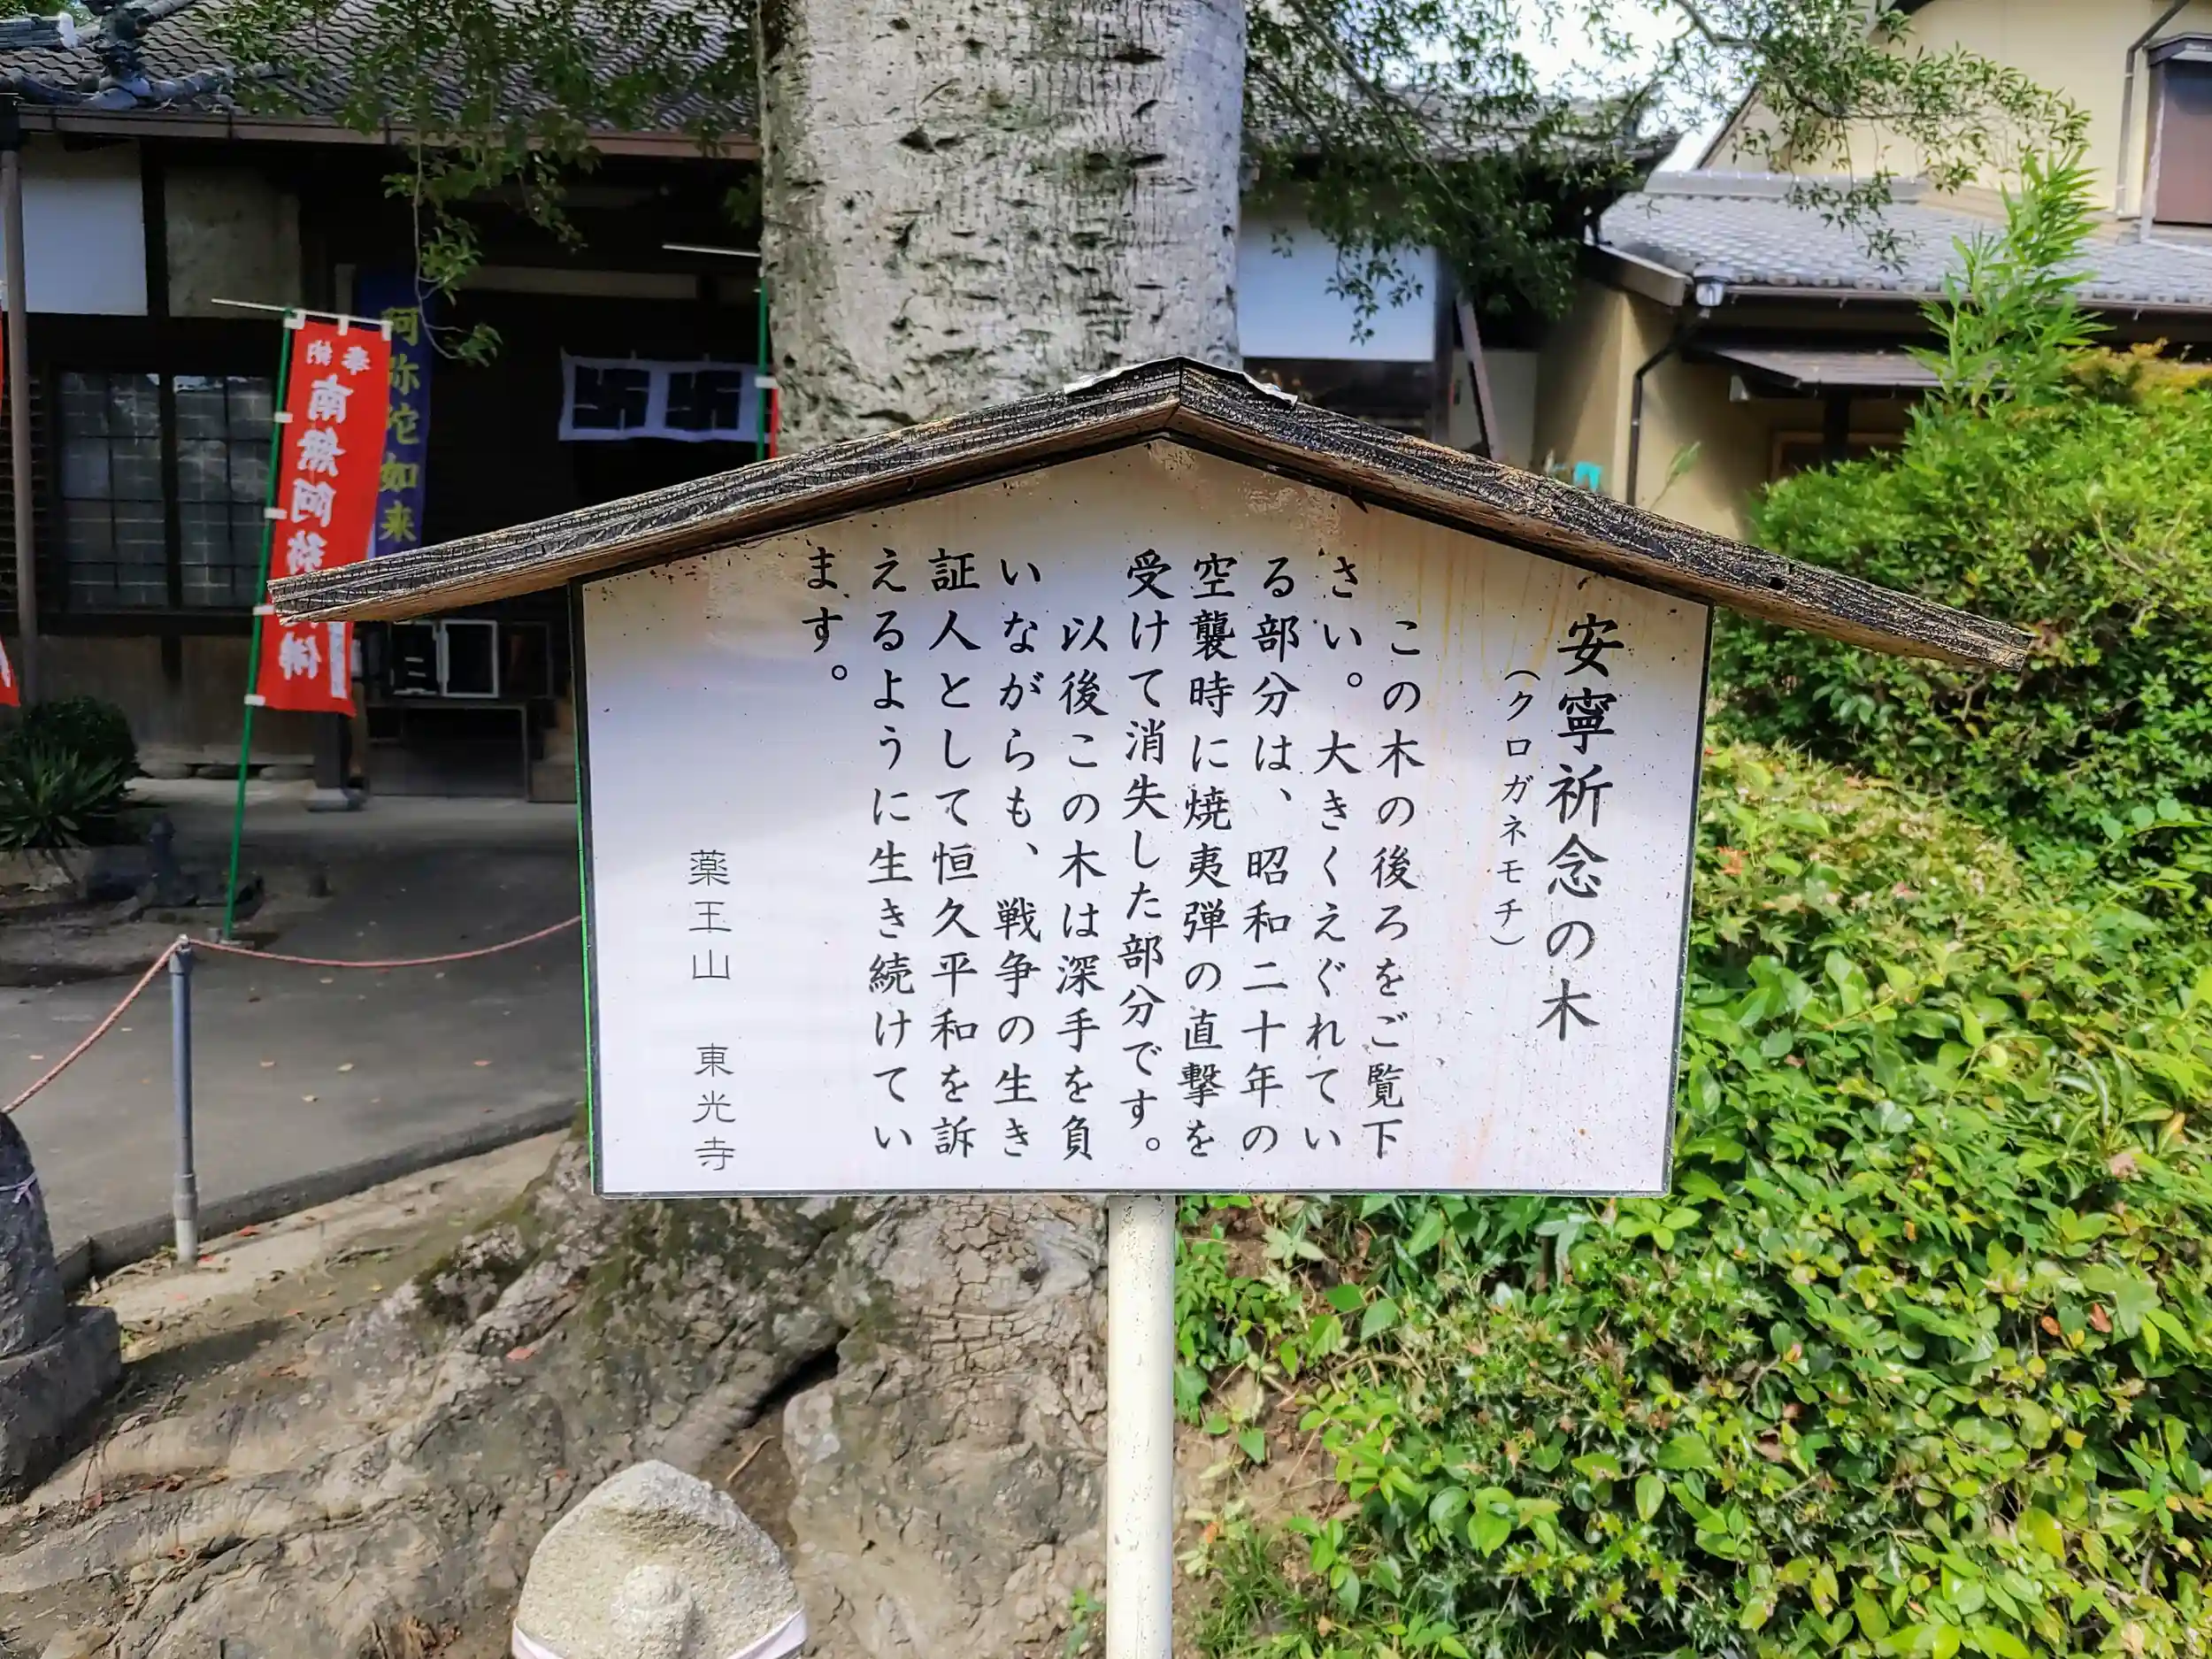 安寧祈念の木
（クロガネモチ）
この木の後ろをご覧下
さい。大きくえぐれてい
る部分は、昭和二十年の
空襲時に焼夷弾の直撃を
受けて消失した部分です。
以後この木は深手を負
いながらも、戦争の生き
証人として恒久平和を訴
えるように生き続けてい
ます。
薬王山　東光寺
阿弥陀如来
奉納
南無阿弥
佛